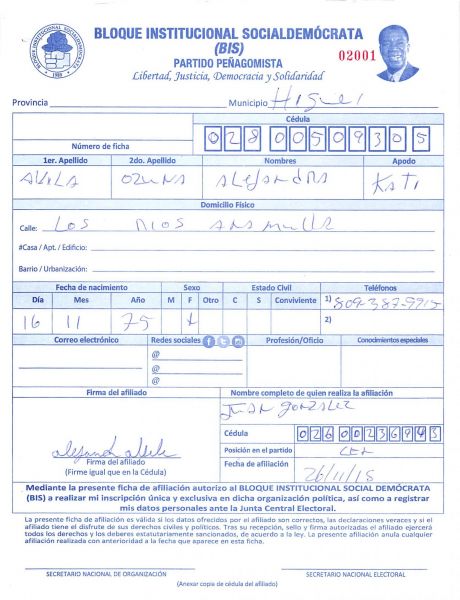 BLOQUE INSTITUCIONAL SOCIALDEMÓCRATA
(BIS)
PARTIDO PEÑAGOMISTA
Libertad, Justicia, Democracia y Solidaridad
02001
BLOQUE INSTITUCIONAL SOCIALDEMOCRATA
Provincia Municipio Higuei
Cédula
Número de ficha 028 0050930 5
1er. Apellido 2do. Apellido Nombres Apodo
AVILA OZUNA ALEJANDRA KATI
Domicilio Físico
Calle: LOS RIOS
#Casa / Apt. / Edificio:
Barrio / Urbanización:
Fecha de nacimiento Sexo Estado Civil Teléfonos
Día Mes Año M F Otro C S Conviviente 1) 809-387-9915
16 11 75 x 2)
Correo electrónico Redes sociales Profesión/Oficio Conocimientos especiales
@
@
@
Firma del afiliado Nombre completo de quien realiza la afiliación
JUAN GONZALEZ
Cédula 026 0023694 3
Firma del afiliado Posición en el partido
(Firme igual que en la Cédula) Fecha de afiliación 26/11/18
Mediante la presente ficha de afiliación autorizo al BLOQUE INSTITUCIONAL SOCIAL DEMÓCRATA
(BIS) a realizar mi inscripción única y exclusiva en dicha organización política, así como a registrar
mis datos personales ante la Junta Central Electoral.
La presente ficha de afiliación es válida si los datos ofrecidos por el afiliado son correctos, las declaraciones veraces y si el
afiliado tiene el disfrute de sus derechos civiles y políticos. Tras su recepción, sello y firma autorizadas el afiliado ejercerá
todos los derechos y los deberes estatutariamente sancionados, de acuerdo a la ley. La presente afiliación anula cualquier
afiliación realizada con anterioridad a la fecha que aparece en esta ficha.
SECRETARIO NACIONAL DE ORGANIZACIÓN SECRETARIO NACIONAL ELECTORAL
(Anexar copia de cédula del afiliado)